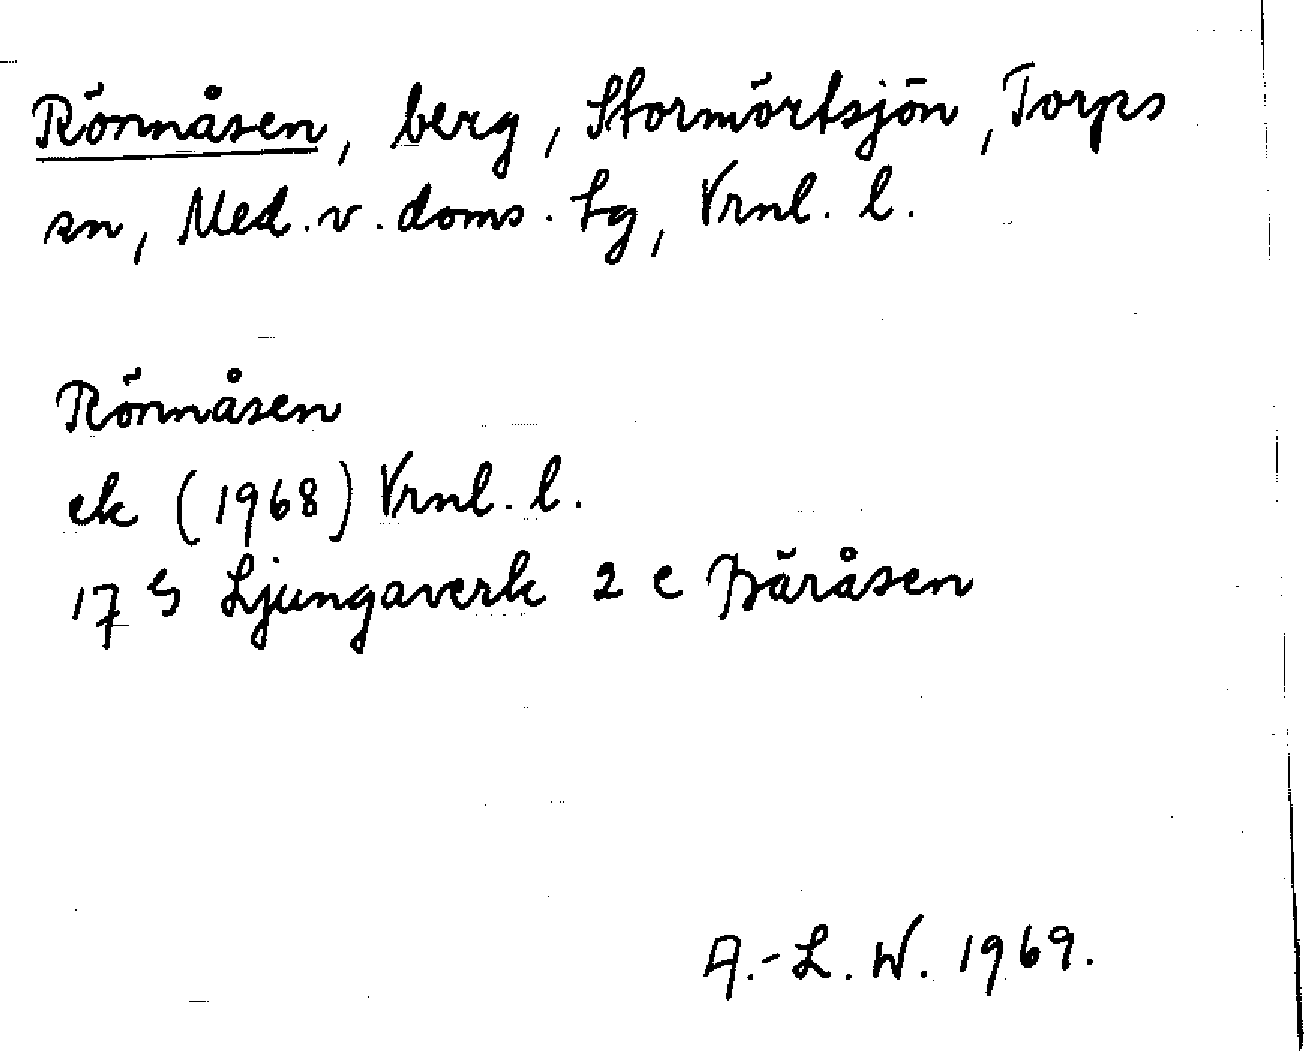 Rönnåsen, berg, Stormörtsjön, Torps
sn, Med. v. doms. tg, Vrnl. l.
Rönnåsen
ek (1968) Vrnl. l.
17 G Ljungaverk 2 c Bäråsen
A.-L. W. 1969.